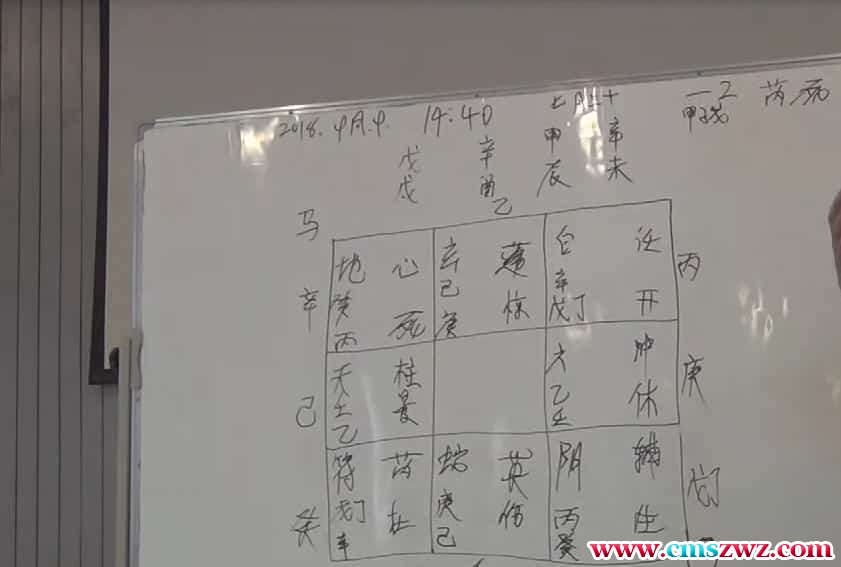 2018.9月.9. 14:40 七月三十 一2 芮死
甲子戊
戊戌 辛酉 甲辰 辛未
乙
马
地 心 玄 蓬 白 任 丙
辛 癸 己 辛
丙 死 庚 惊 戊丁 开
天 柱 六 冲 庚
己 壬 景 乙 休
乙 壬
符 芮 蛇 英 阴 辅 戊丁
癸 戊丁 杜 庚 伤 丙 生
辛 己 癸
www.cmszwz.com